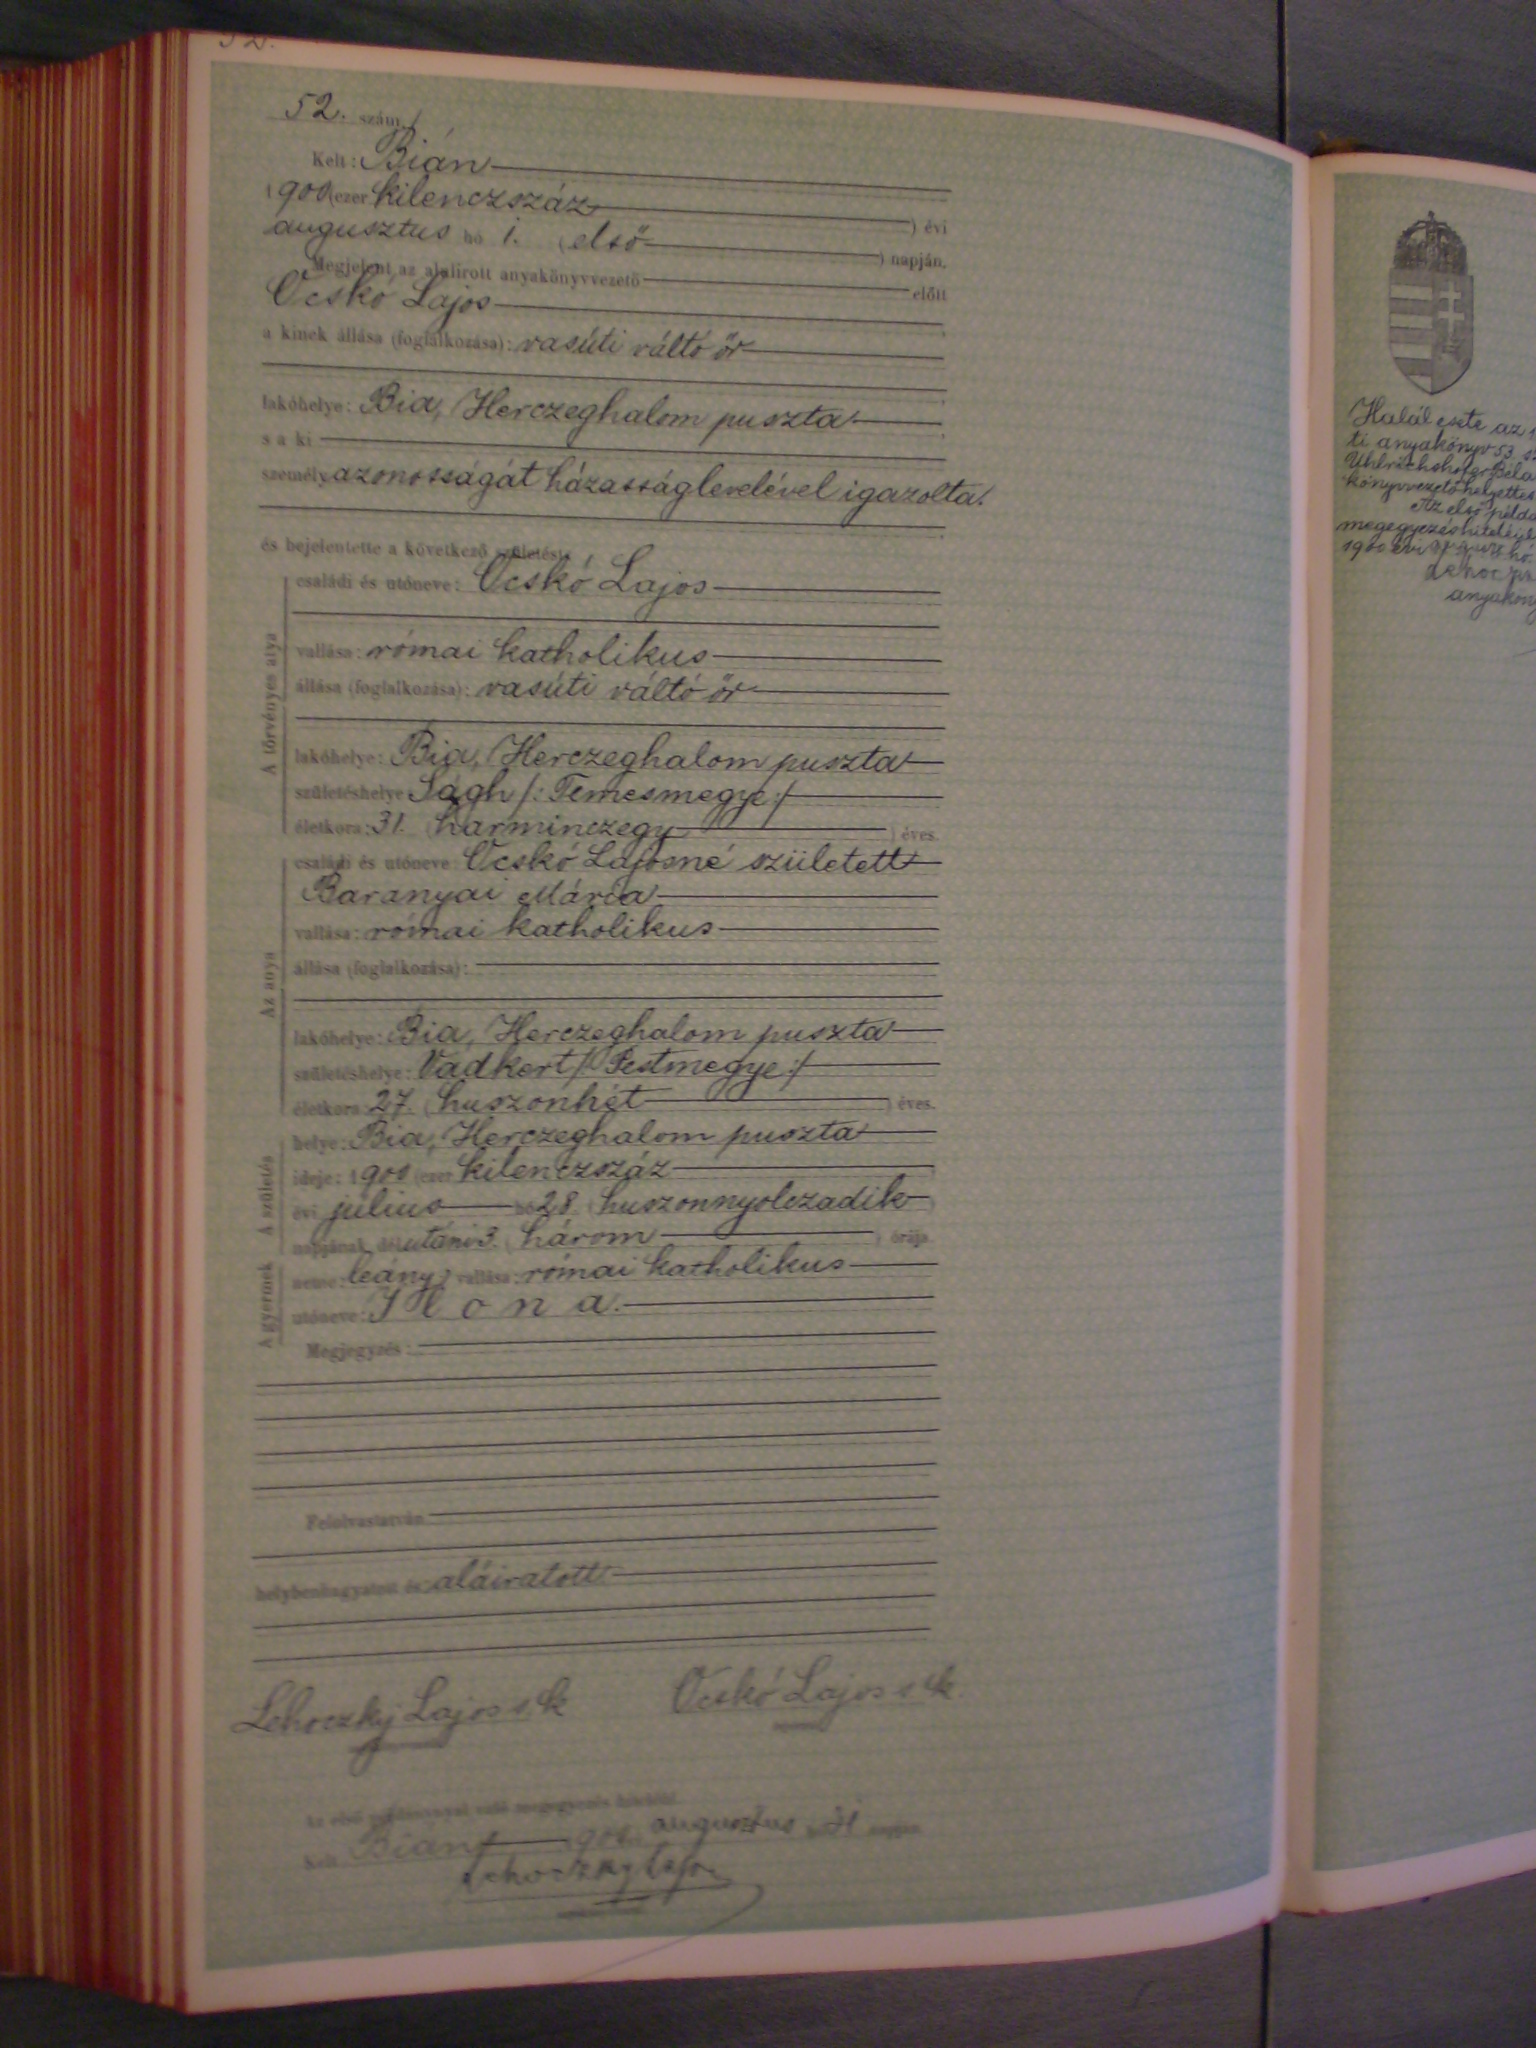 52.
52. szám.
Kelt: Bián
1900 (ezer kilenczszáz) évi
augusztus hó 1. (első) napján.
Megjelent az alulirott anyakönyvvezető előtt
Ocskó Lajos
a kinek állása (foglalkozása): vasúti váltó őr
lakóhelye: Bia, Herczeghalom puszta
s a ki
személyazonosságát házasságlevelével igazolta.
és bejelentette a következő születést:
A törvényes atya
családi és utóneve: Ocskó Lajos
vallása: római katholikus
állása (foglalkozása): vasúti váltó őr
lakóhelye: Bia, Herczeghalom puszta
születéshelye Ságh /: Temesmegye :/
életkora: 31. (harminczegy) éves.
Az anya
családi és utóneve: Ocskó Lajosné született
Baranyai Mária
vallása: római katholikus
állása (foglalkozása):
lakóhelye: Bia, Herczeghalom puszta
születéshelye: Vadkert /: Pestmegye :/
életkora: 27. (huszonhét) éves.
A születés
helye: Bia, Herczeghalom puszta
ideje: 1900 (ezer kilenczszáz
évi július hó 28. (huszonnyolczadik)
napjának délutáni 3. (három) órája
A gyermek
neme: leány; vallása: római katholikus
utóneve: Ilona.
Megjegyzés:
Felolvastatván
helybenhagyatott és aláiratott.
Lehoczky Lajos s. k. Ocskó Lajos s. k.
Az első példánnyal való megegyezés hiteléül
Kelt Bián, 1900. augusztus hó 31 napján
Lehoczky Lajos
Halál este az
ti anyakönyv 53. sz
Béla
könyvvezető helyettes
Az első példá
megegyezés hiteléül
1900 évi hó
Lehoczky
anyaköny